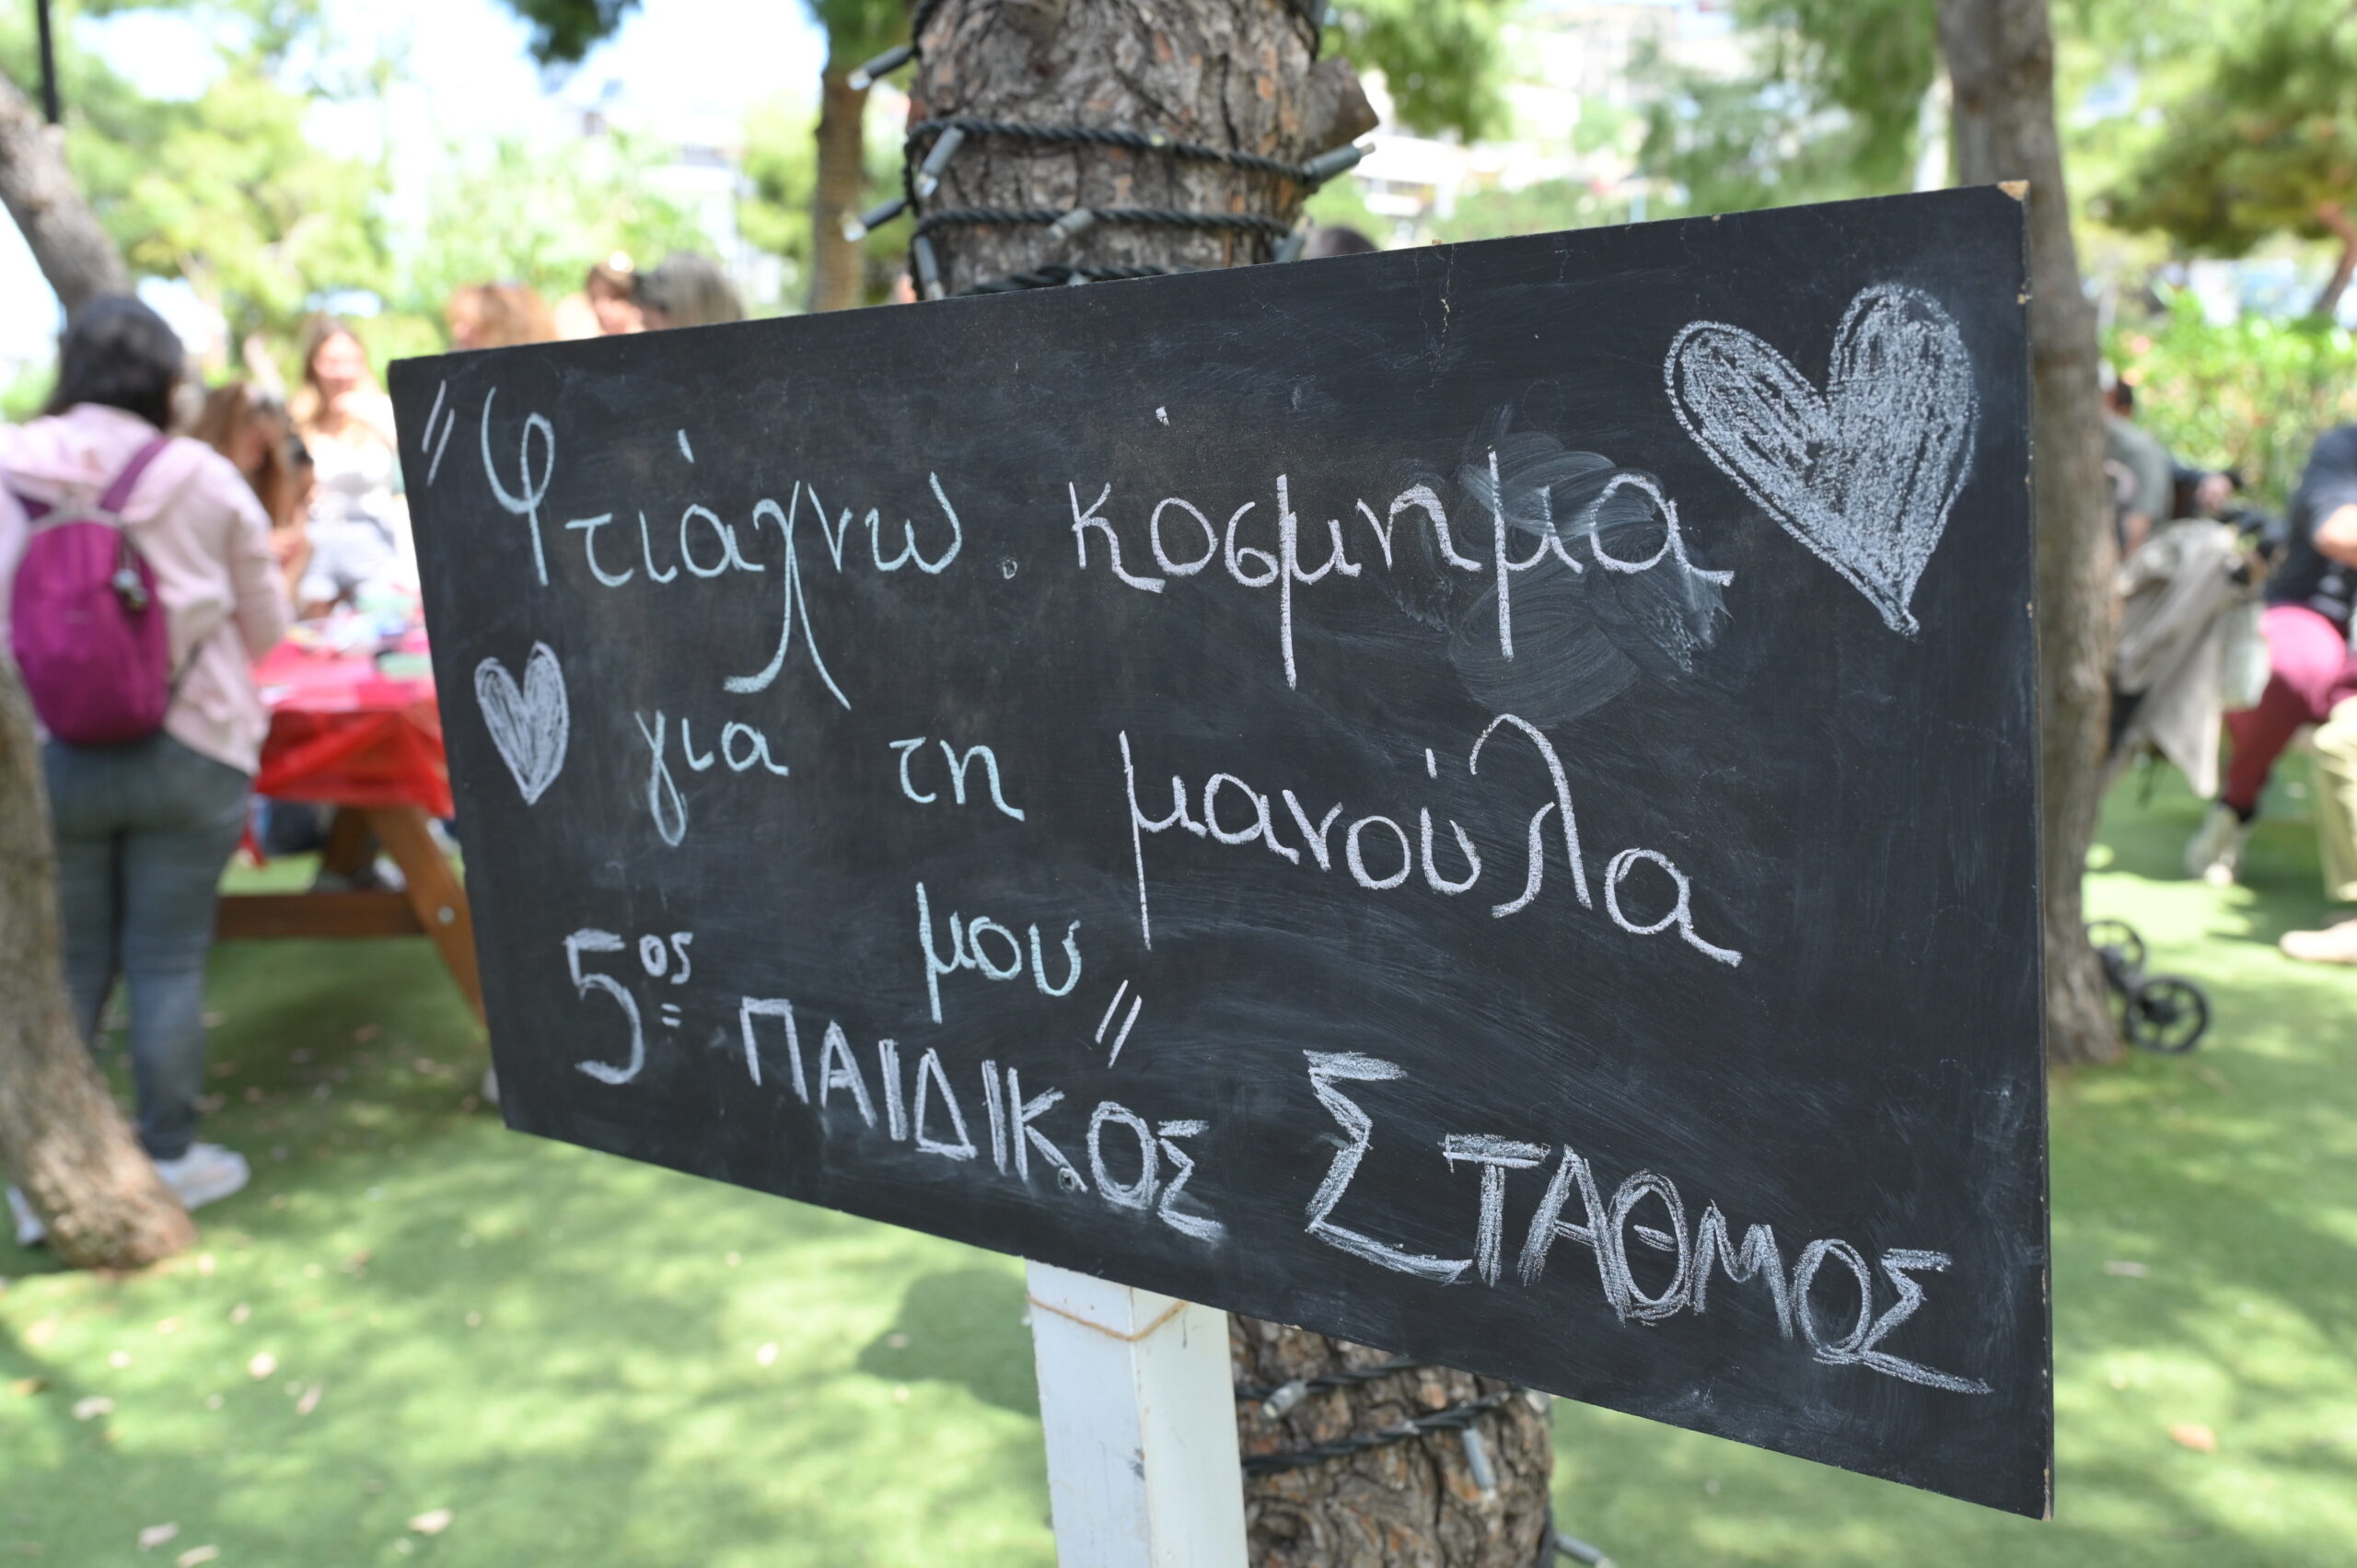 "Φτιάχνω κόσμημα
για τη μανούλα
μου"
5ος ΠΑΙΔΙΚΟΣ ΣΤΑΘΜΟΣ